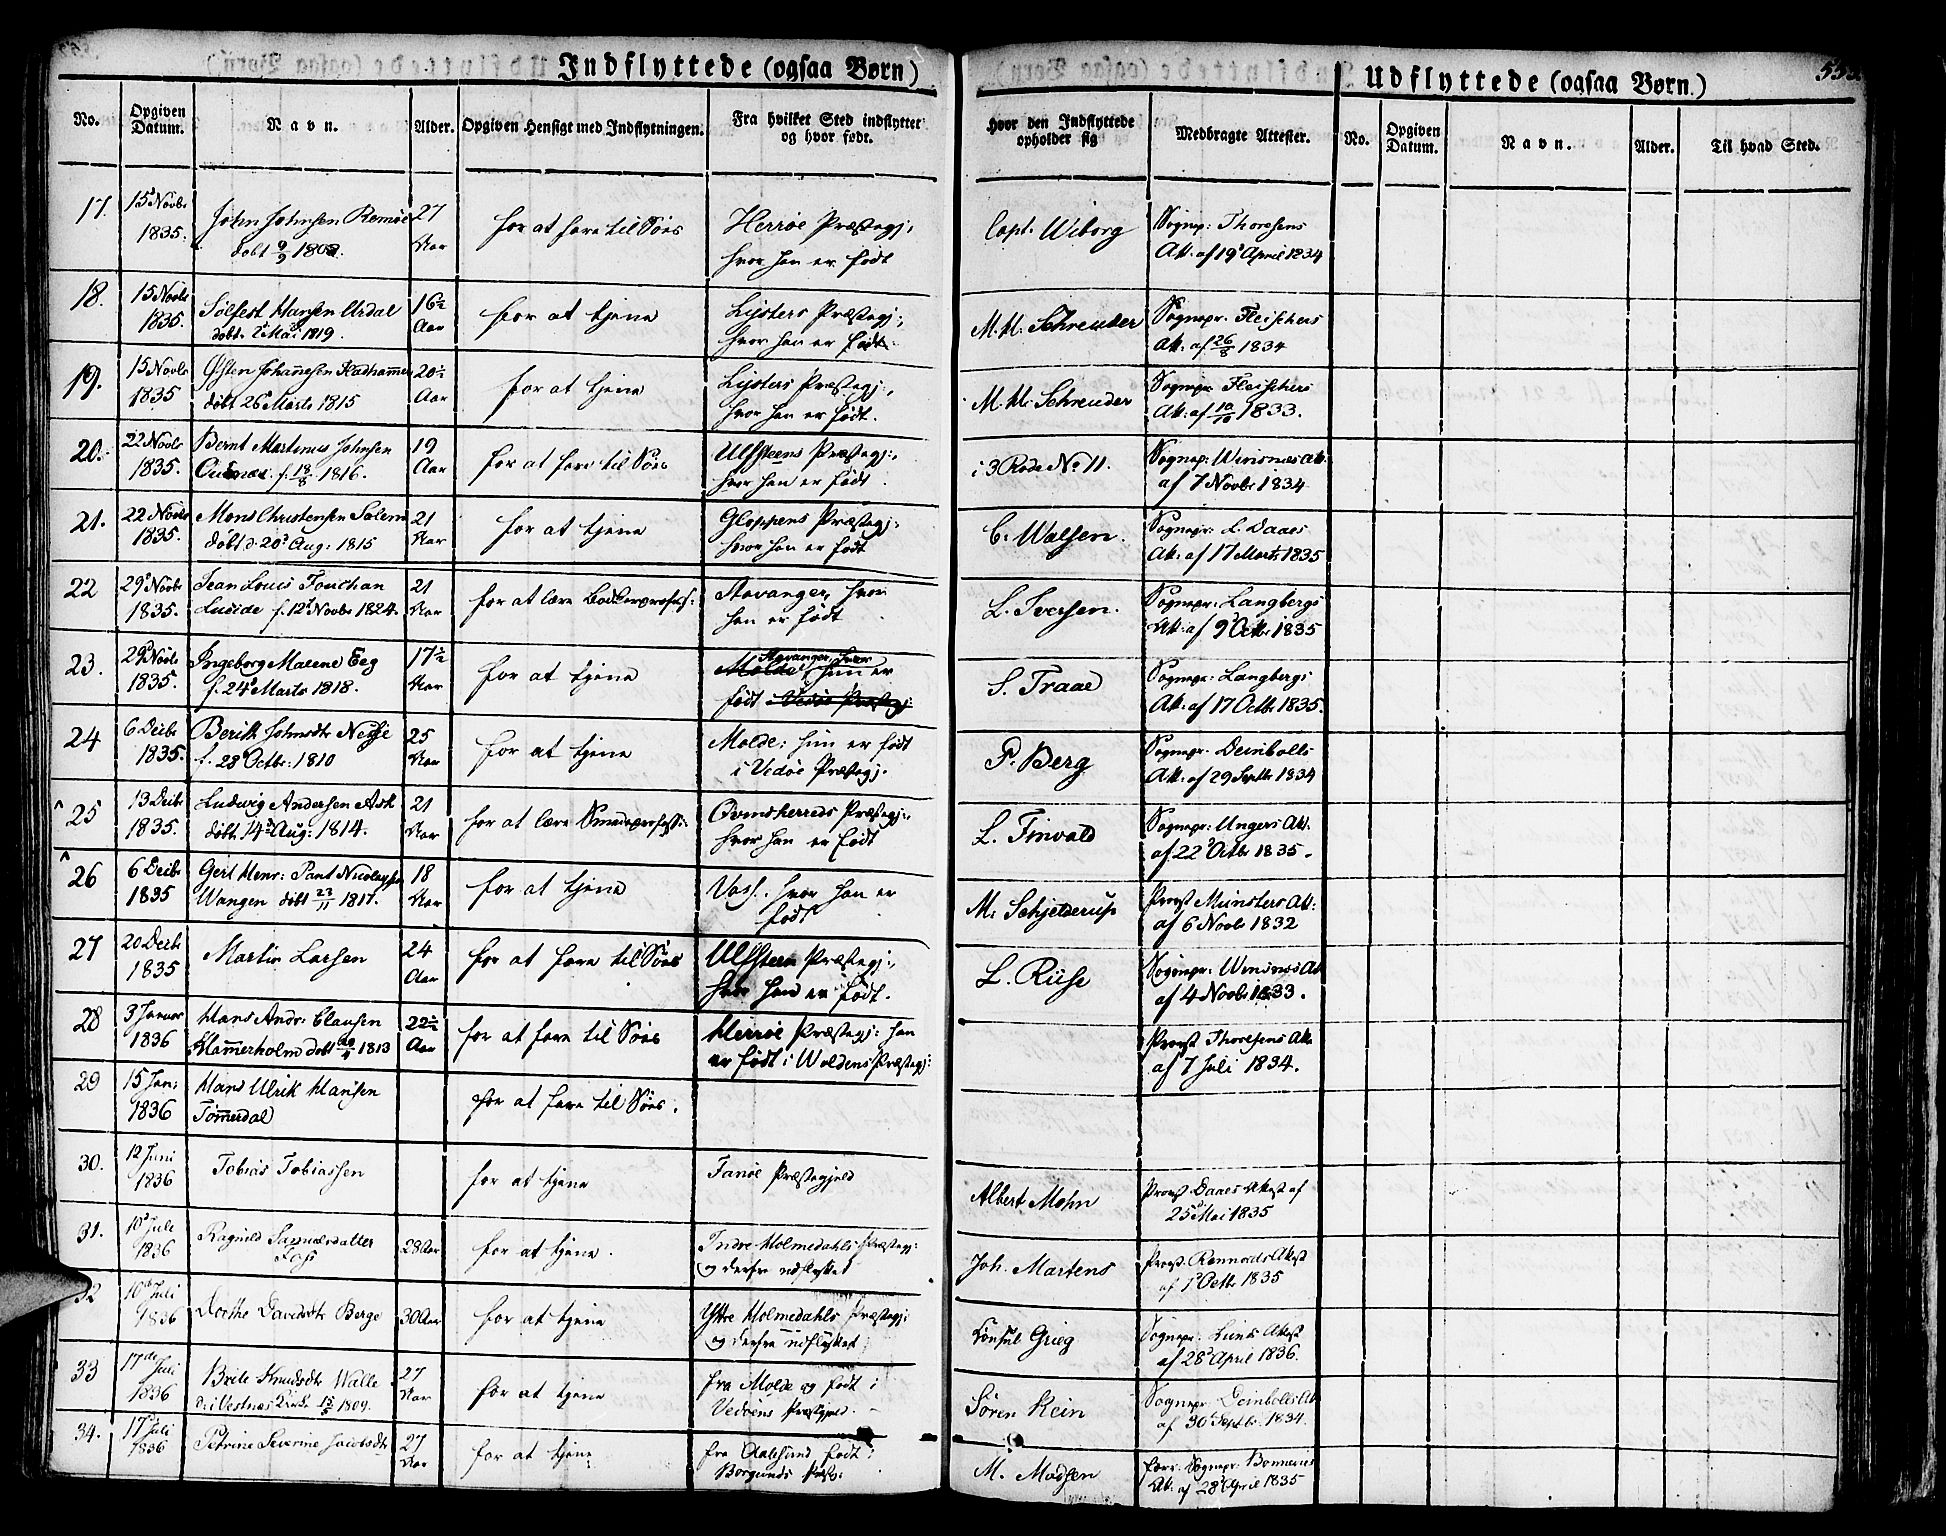 Indflyttede (ogsaa Børn)
Udflyttede (ogsaa Børn.)
No.
Opgiven Datum.
Navn.
Alder.
Opgiven Hensigt med Indflytningen.
Fra hvilket Sted indflyttet og hvor født.
Hvor den Indflyttede opholder sig
Medbragte Attester.
No.
Opgiven Datum.
Navn.
Alder.
Til hvad Sted.
17. 15 Novbr John Johnsen Remøe 27 for at fare til Søes Herröe Præstegj: Capt. Wiborg Sognep: Thoresens
1835. döbt 9/9 Aar hvor han er född Att. af 19 April 1834
18. 15 Novbr Sölfest Hansen Urdal 16½ for at tjene Lysters Præstegj:, M. H. Schreuder Sognepr. Fleischers
1835. döbt 2 Mai 1819. Aar hvor han er födt. Att: af 26/8 1834
19. 15 Novbr Østen Johannesen Kadhammer 20½ for at tjene Lysters Præstegj:, M. H. Schreuder Sognepr. Fleischers
1835 döbt 26 Marts 1815 Aar hvor han er födt. Att: af 10/10 1833.
20. 22 Novbr Bernt Martinus Johnsen 19 for at fare til Søes Ulfsteens Præstegj:, i 3 Rode No 11. Sognep: Winsnæs Att.
1835. f. 18/8 1816. Aar hvor han er födt. af 7 Novbr 1834
21. 22 Novbr Mons Christensen Solem 21 for at tjene Gloppens Præstegj: C. Walsen. Sognepr: L. Daaes
1835. döbt d. 20 Aug: 1815 Aar hvor han er födt Att: af 17 Marts 1835
22 29 Novbr Jean Louis Fouchan 21 for at lære Bødkerprofess: Stavanger, hvor L. Iversen. Sognepr: Langbergs
1835. Lucide f. 12 Novbr 1824. Aar han er födt Att: af 9 Octbr 1835
23. 29 Novbr Ingeborg Malene Eeg 17½ for at tjene Molde, Stavanger, hvor hun er S. Traae Sognepr: Langbergs
1835. f. 24 Marts 1818. Aar födt i Vedøe Præstegj: Att: af 17 Octbr 1835.
24 6 Decbr Berith Johnsdtr Nesje 25 for at tjene Molde: hun er födt P. Berg Sognepr. Deinbolls
1835. f. 28 Octbr: 1810 Aar i Vedøe Præstegj. Att: af 29 Septbr 1834
25 13 Decbr Ludvig Andersen Ask 21 for at lære Smedeprofess: Qvinsherreds Præstegj:, L. Sognepr: Ungers Att.
1835. döbt 14 Aug: 1814. Aar hvor han er födt af 22 Octbr 1835.
26 6 Decbr Gert Henr: Pant Nicolaysen 18 for at tjene Voss. hvor han er M: Schjelderup Provst Münsters Att:
1835 Wangen döbt 23/11 1817. Aar födt af 6 Novbr 1832
27 20 Decbr Martin Larsen 24 for at fare til Søes Ulfsteen Præstegj:, L. Riise Sognepr: Winsnes Att
1835 Aar hvor han er födt. af 4 Novbr 1833.
28 3 Januar Hans Andr: Clausen 22½ for at fare til Søes Herröe Præstegj: han Provst Thoresens Att.
1836 Hammerholm döbt 1813 Aar er födt i Woldens Præstegj: af 7 Juli 1834.
29 15 Jan: Hans Ulrik Hansen for at fare til Søes.
1836 Tömmerdal
30. 12 Juni Tobias Tobiassen for at tjene Fanöe Præstegjeld Albert Mohn Provst Daaes Attest af
1836 25 Mai 1835
31. 10 Juli Ragnild Samuelsdatter 28 Aar for at tjene. Indre Holmedahls Præstegj: Joh. Martens Provst Rennords Attest
1836 Foss og derfra udflyttet af 1 Octbr 1835
32 10 Juli Dorthe Davidsdtr Berge 30 Aar for at tjene Yttre Holmedahls Præstegj: Consul Grieg Sognepr: Lunds Attest
1836 og derfra udflyttet af 28 April 1836.
33 17de Juli Brite Knudsdtr Walle 27 for at tjene fra Molde og födt i Sören Kein Sognepr: Deinbolls Att
1836 d. i Vestnæs Kirke 1809. Aar Vedöens Præstgjeld. af 30 Septbr. 1834.
34. 17 Juli Petrine Severine Jacobsdtr 27 for at tjene fra Aalesund födt i M. Madsen forr: Sognepr. Bonnevies
1836 Aar Borgunds Præst: Att: af 28 April 1835